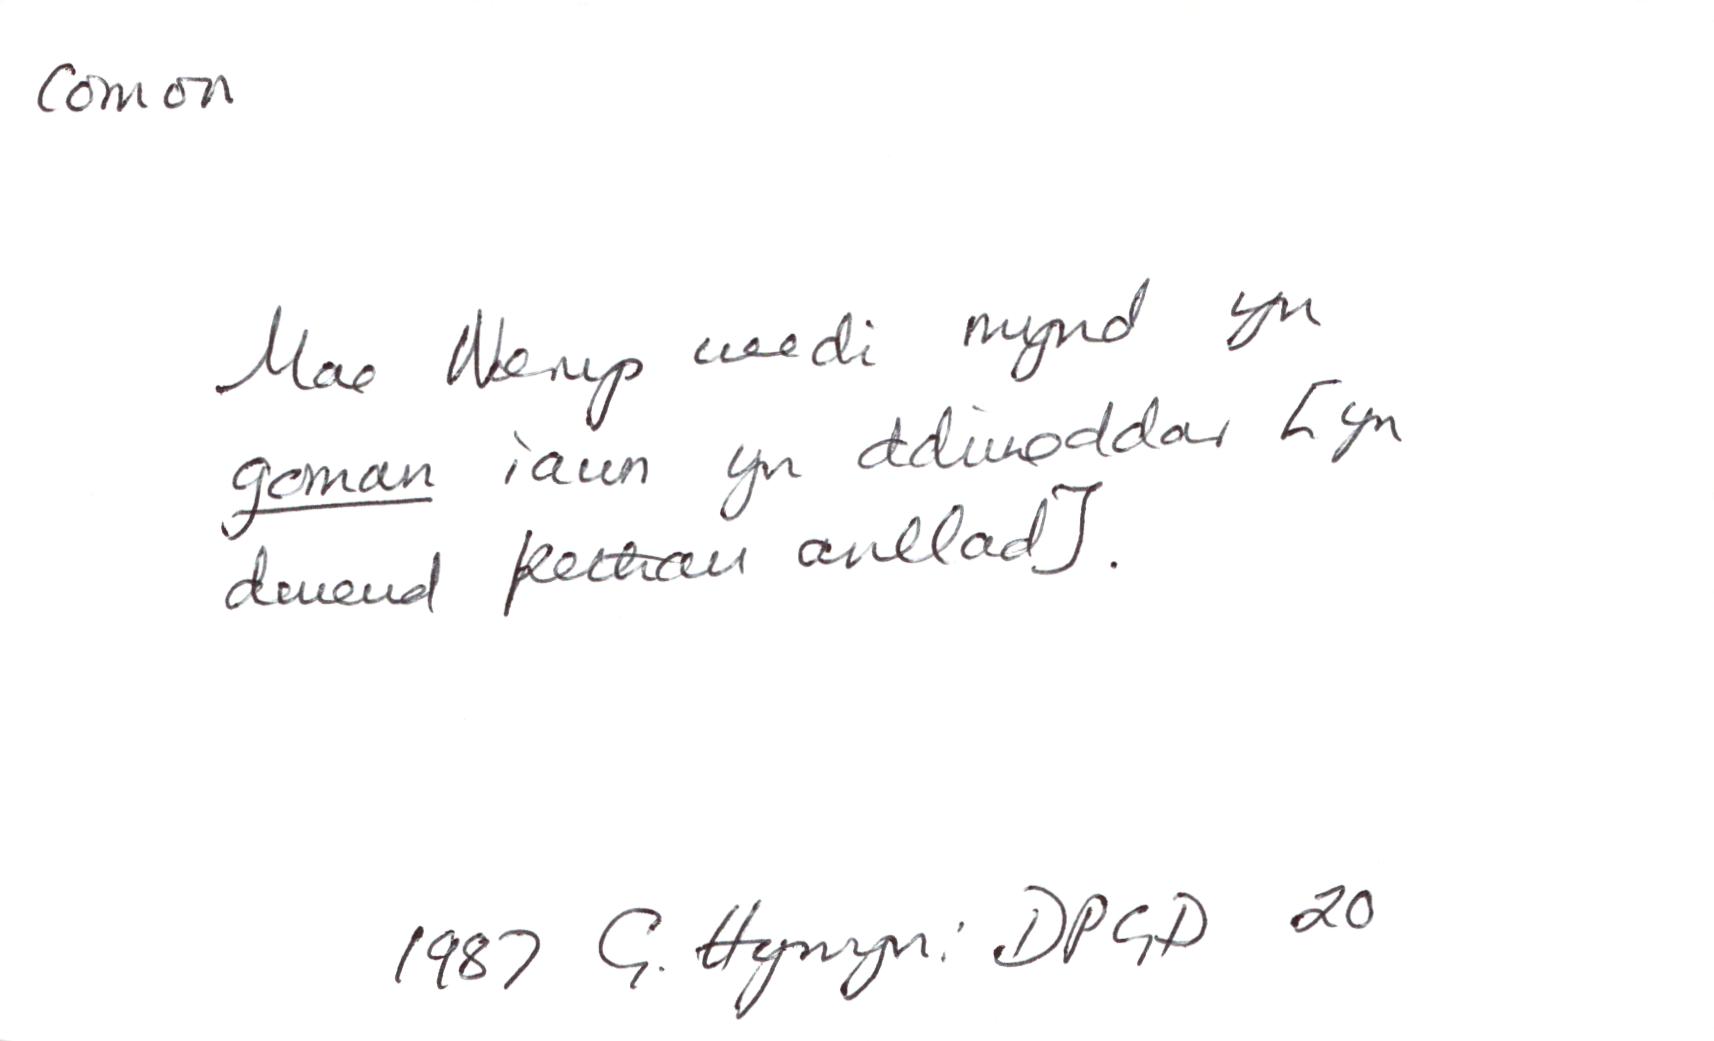 Comon
Mae Wenyp wedi mynd yn
goman iawn yn ddiweddar [yn
dweud pethau anllad].
1987 G. Hynyn: DPGD 20